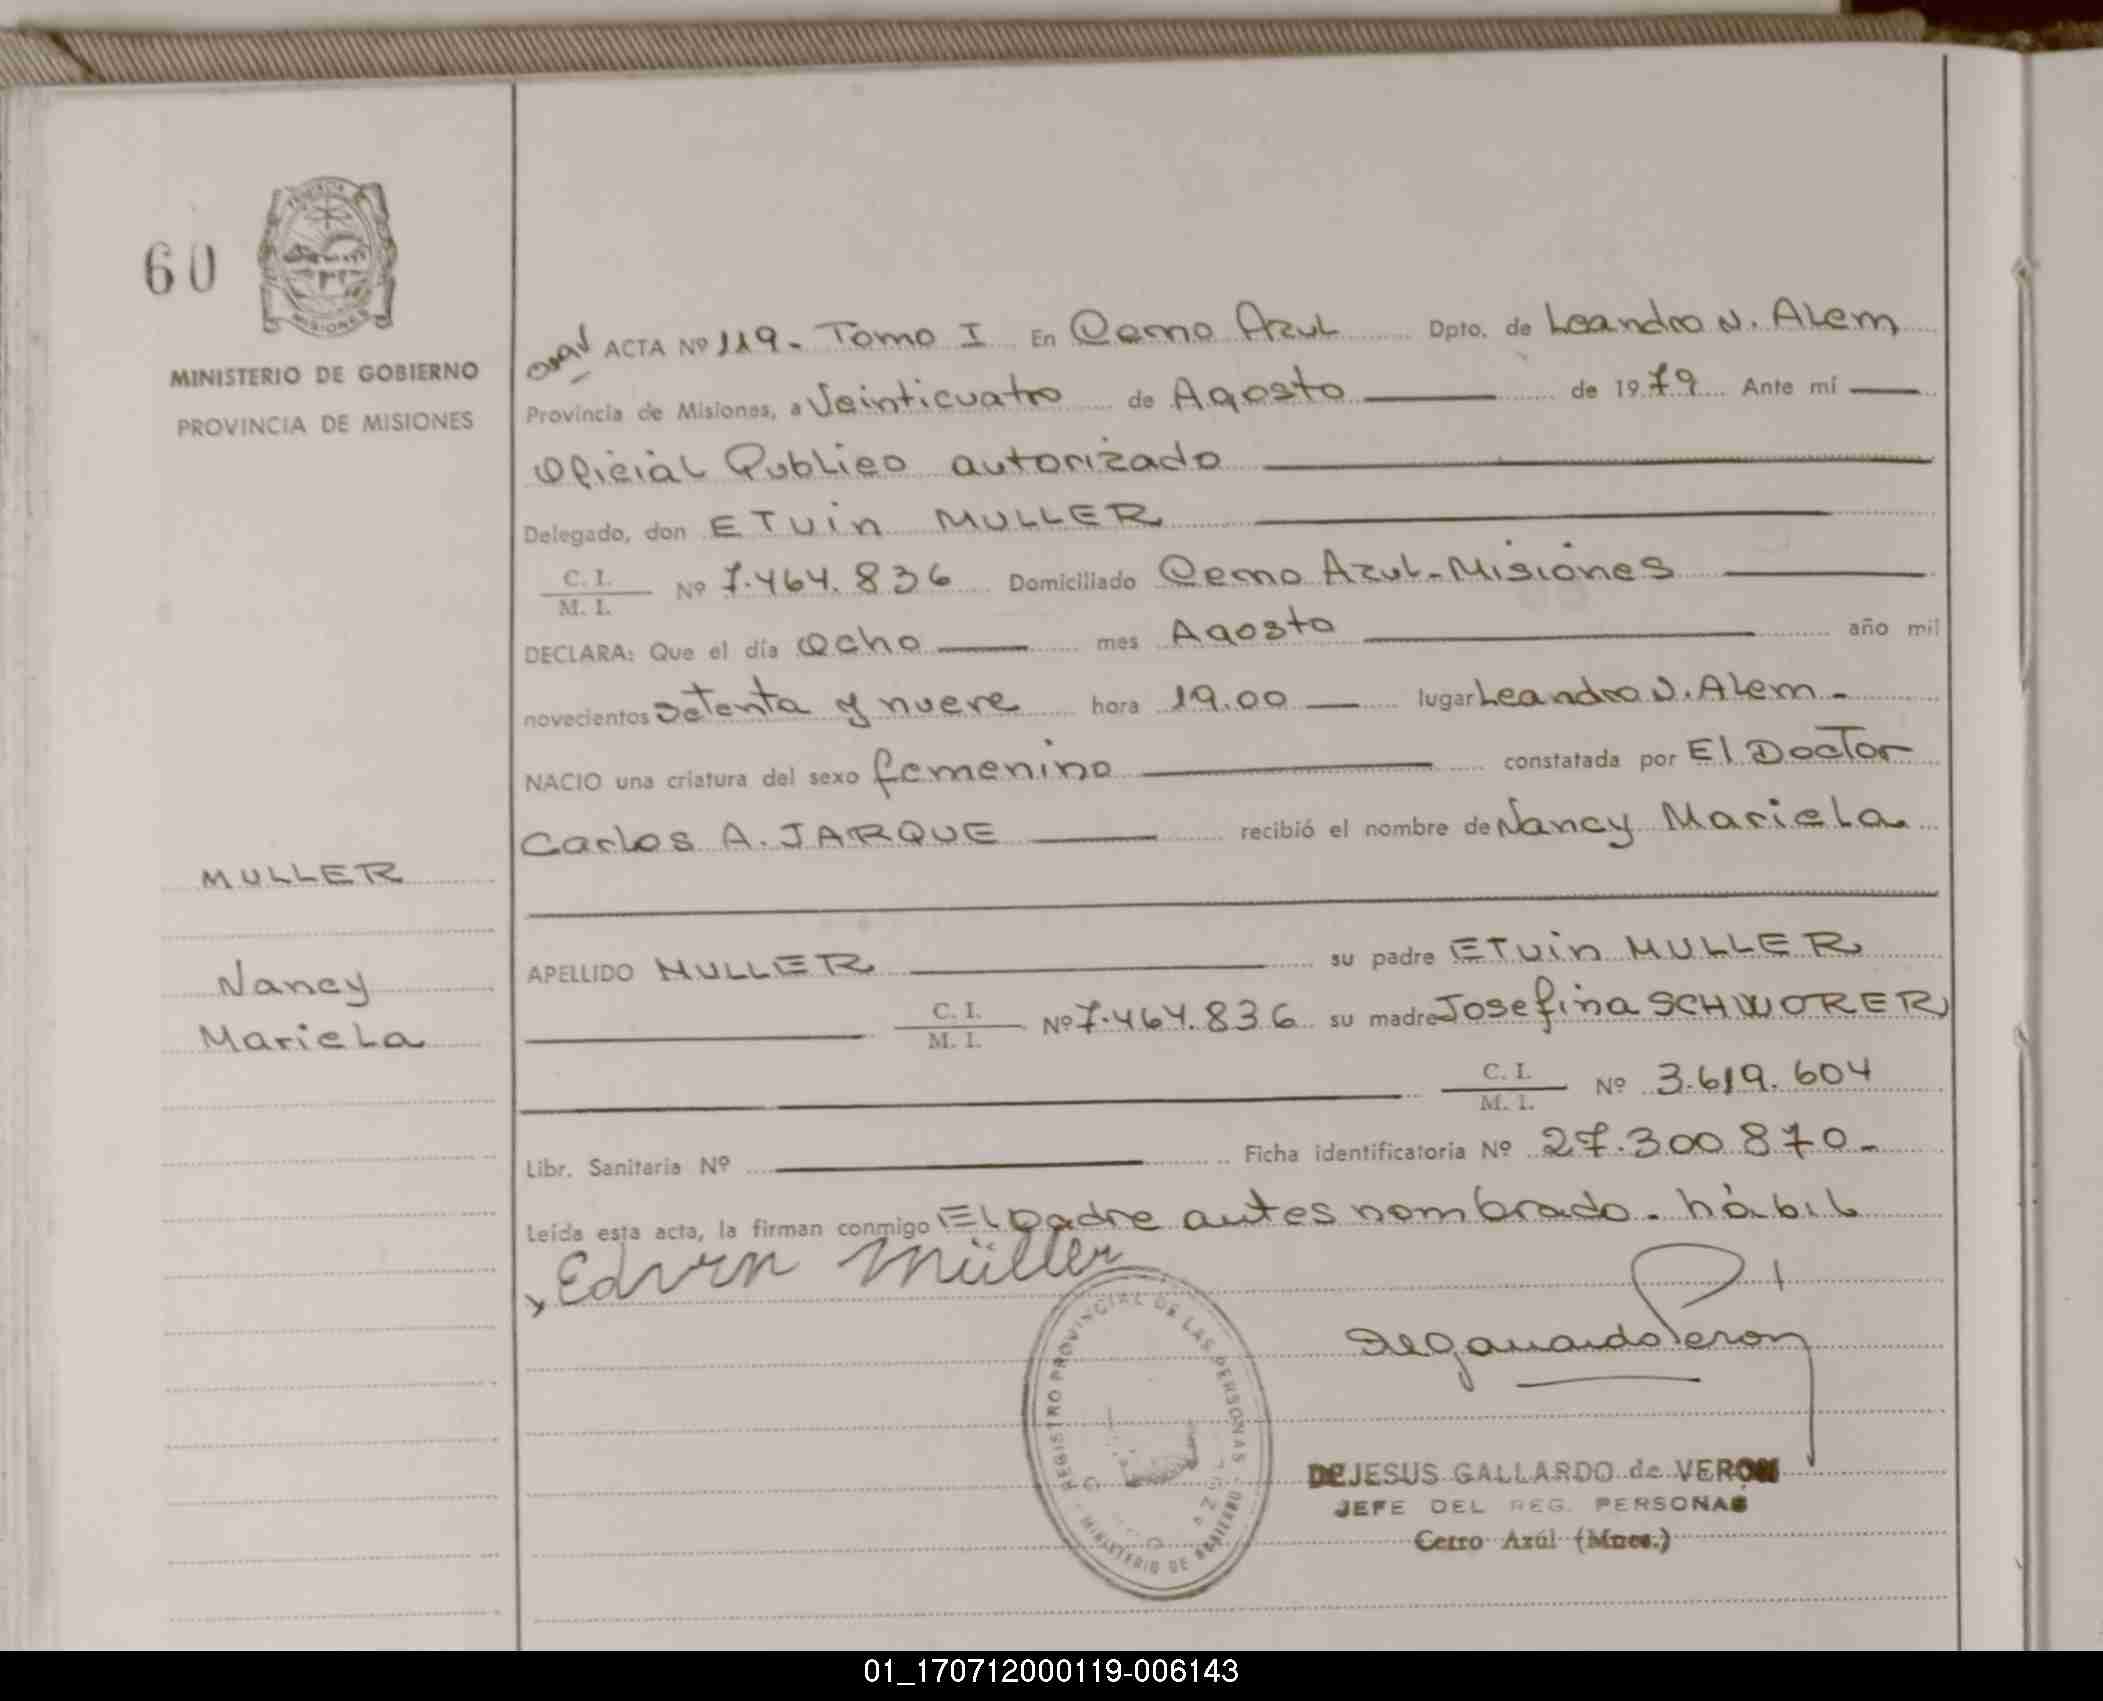 60
MINISTERIO DE GOBIERNO
PROVINCIA DE MISIONES
MULLER
Nancy
Mariela
ACTA Nº 119- Tomo I En Cerro Azul Dpto. de Leandro N. Alem
Provincia de Misiones, a Veinticuatro de Agosto de 1979 Ante mí
Oficial Publico autorizado
Delegado, don ETuin MULLER
C. I.
M. I.
Nº 7.464.836 Domiciliado Cerro Azul-Misiones
DECLARA: Que el día Ocho mes Agosto año mil
novecientos setenta y nueve hora 19.00 lugar Leandro N. Alem-
NACIO una criatura del sexo femenino constatada por El Doctor
Carlos A. JARQUE recibió el nombre de Nancy Mariela
APELLIDO MULLER su padre ETuin MULLER
C. I.
M. I.
Nº 7.464.836 su madre Josefina SCHWORER
C. I.
M. I.
Nº 3.619.604
Libr. Sanitaria Nº Ficha identificatoria Nº 27.300.870-
Leída esta acta, la firman conmigo El padre antes nombrado. hábil
Edvin Müller
REGISTRO PROVINCIAL DE LAS PERSONAS
MINISTERIO DE GOBIERNO
DEJESUS GALLARDO de VERON
JEFE DEL REG. PERSONAS
Cerro Azúl (Mnes.)
01_170712000119-006143